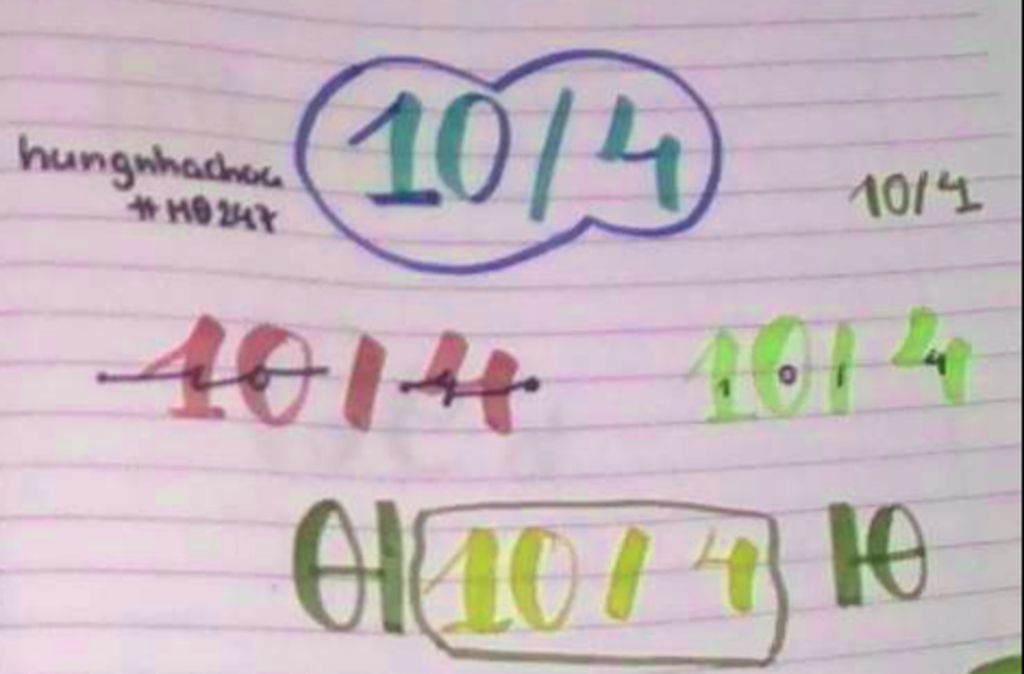 10/4
hungnhachoa
#HΘ247
10/4
10/4
10/4
10/4